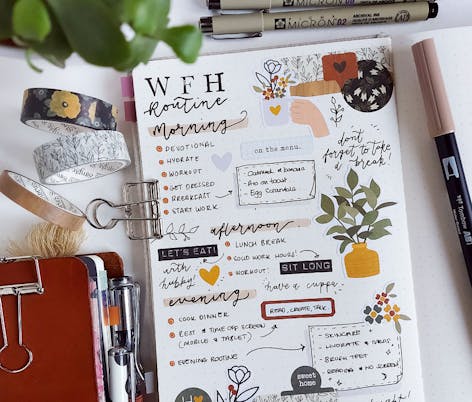 MICRON
MICRON 02
WFH
Routine
Morning
DEVOTIONAL
HYDRATE
WORKOUT
GET DRESSED
BREAKFAST
START WORK
on the menu.
Oatmeal & banana
Avo on toast
Egg Scramble
don't
forget to take
a break!
afternoon
LET'S EAT!
with
hubby!
LUNCH BREAK
SOLID WORK HOURS!
WORKOUT!
SIT LONG
have a cuppa
evening
COOK DINNER
REST & TIME OFF SCREEN
(MOBILE & TABLET)
EVENING ROUTINE
READ, CREATE, TALK
SKINCARE
BRUSH TEET
READING & NO SCREEN
sweet
home